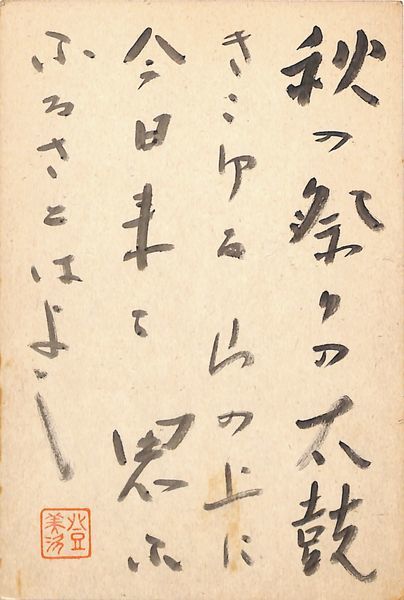 秋の祭りの太鼓
きこゆる山の上に
今日来て思ふ
ふるさとはよし